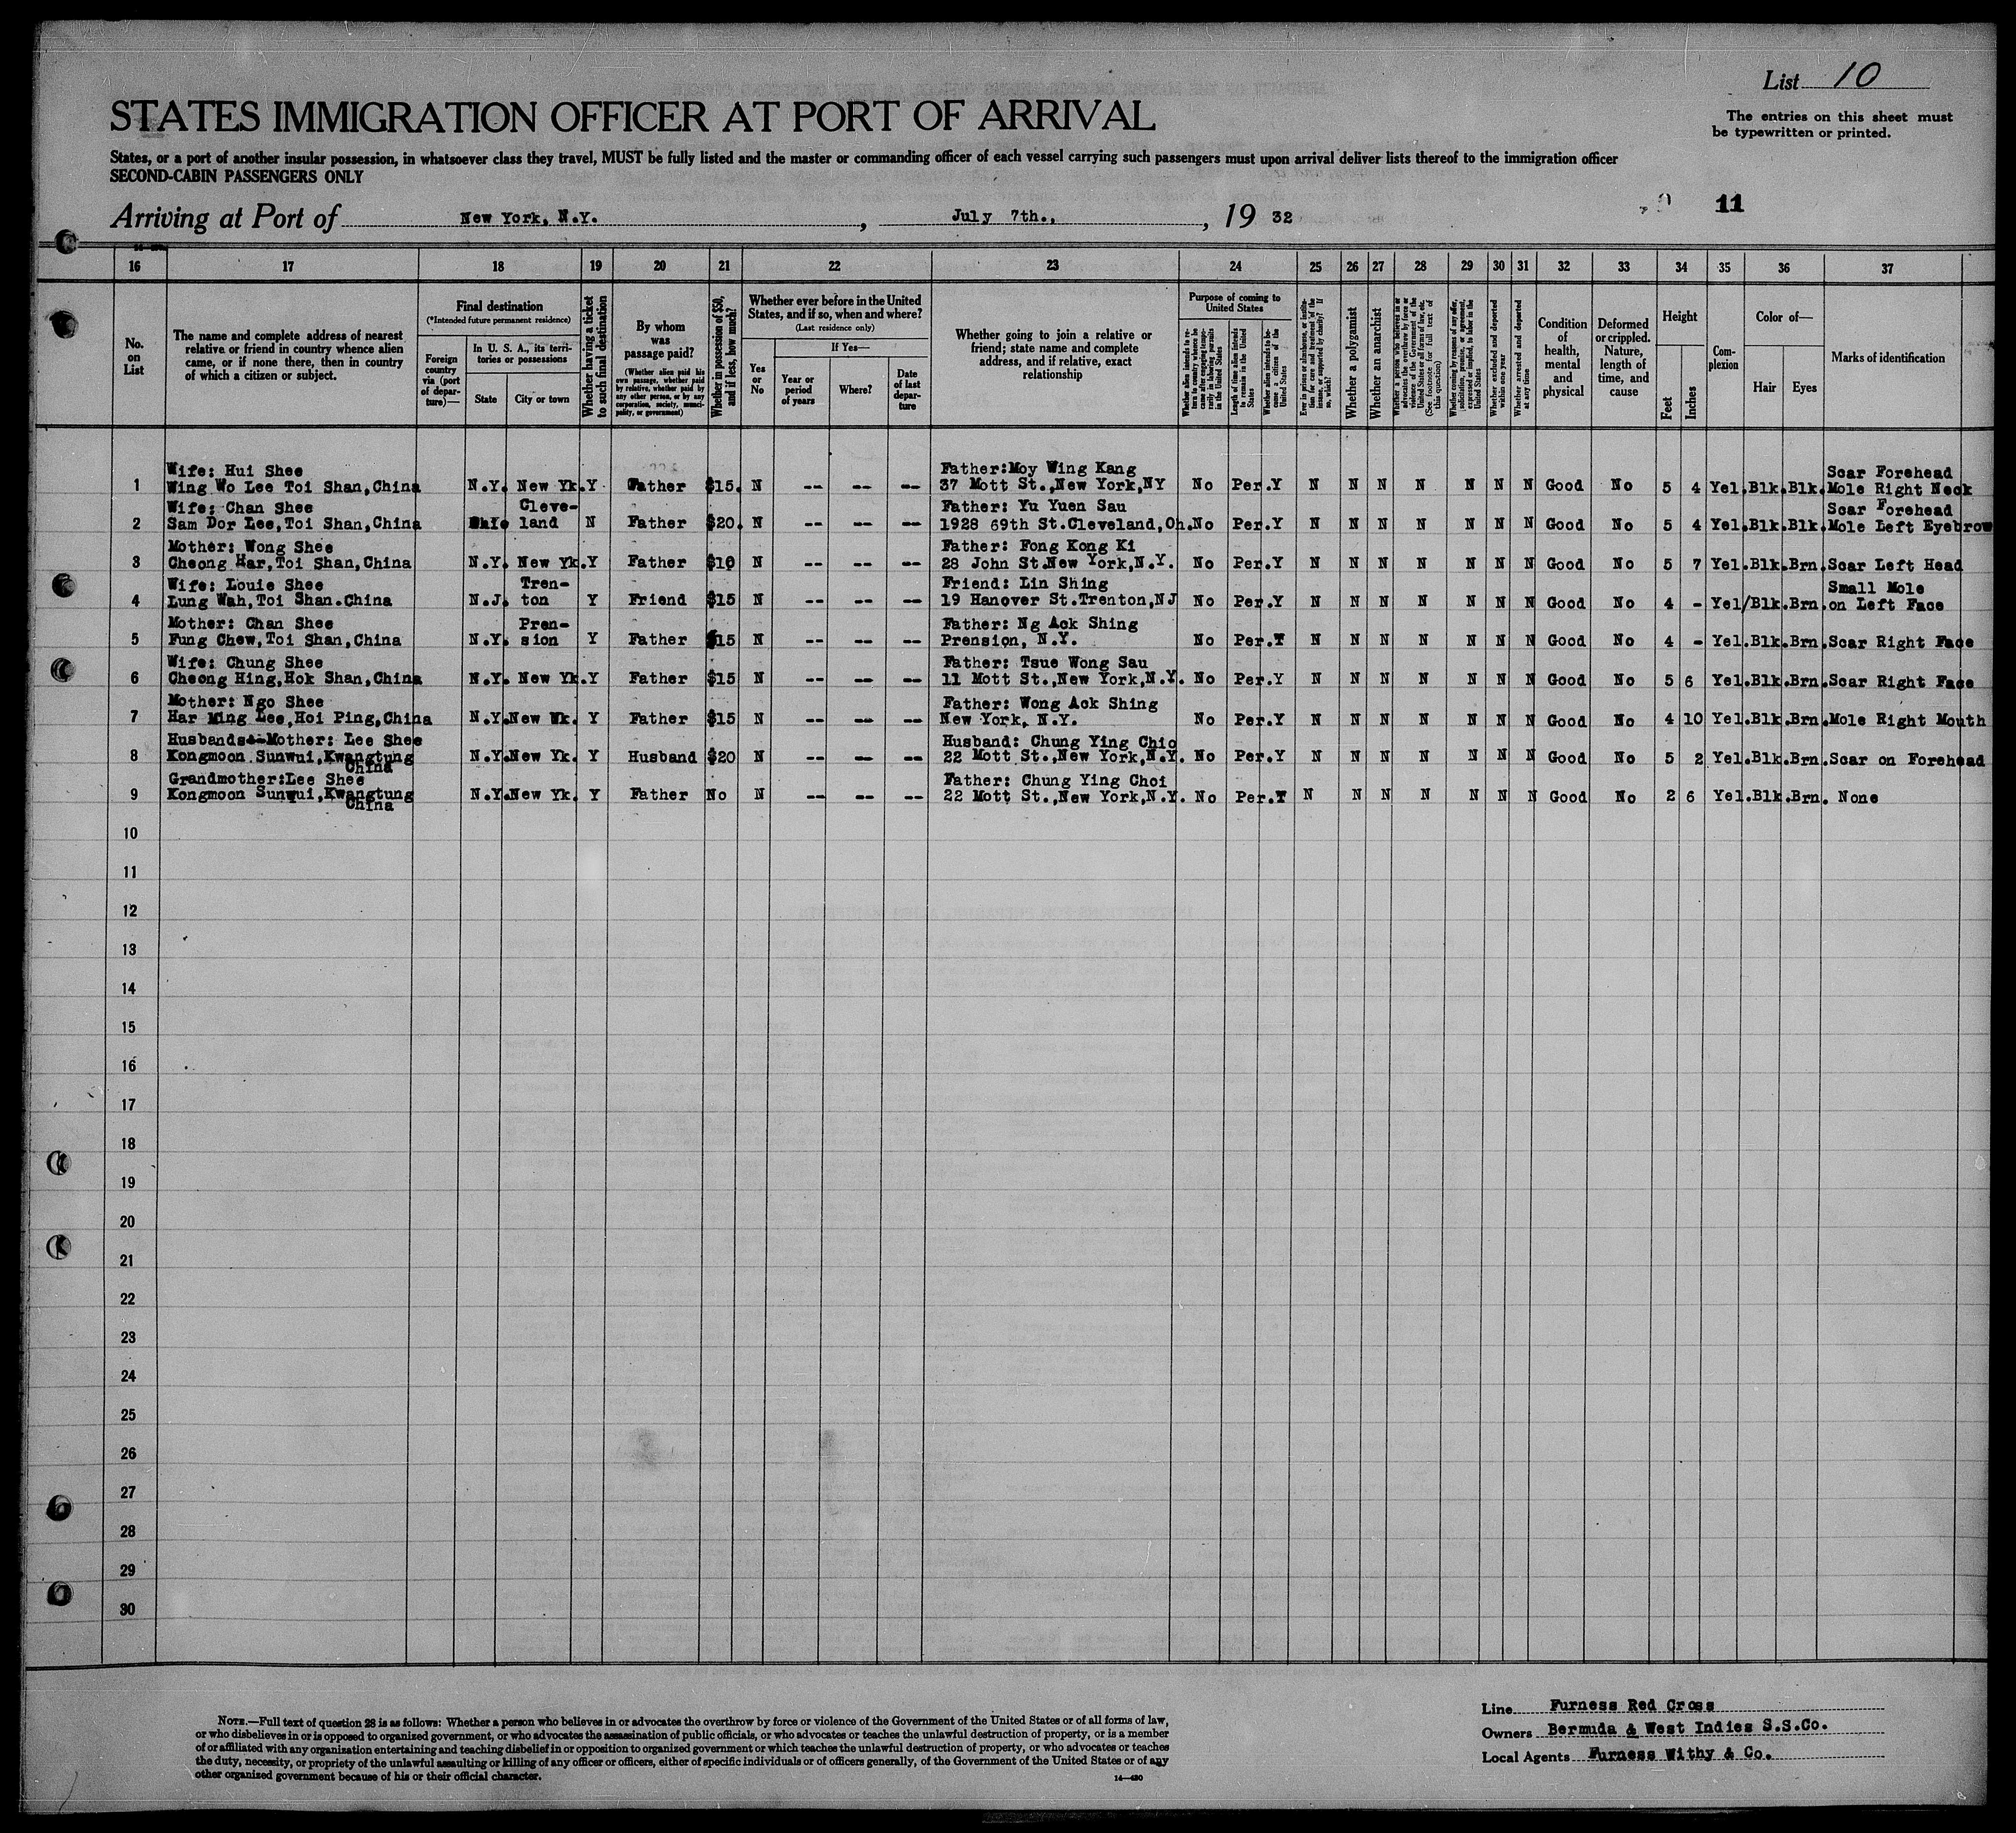 List 10
The entries on this sheet must
be typewritten or printed.
STATES IMMIGRATION OFFICER AT PORT OF ARRIVAL
States, or a port of another insular possession, in whatsoever class they travel, MUST be fully listed and the master or commanding officer of each vessel carrying such passengers must upon arrival deliver lists thereof to the immigration officer
SECOND-CABIN PASSENGERS ONLY
11
Arriving at Port of New York, N.Y., July 7th., , 19 32
16 17 18 19 20 21 22 23 24 25 26 27 28 29 30 31 32 33 34 35 36 37
No.
on
List
The name and complete address of nearest
relative or friend in country whence alien
came, or if none there, then in country
of which a citizen or subject.
Final destination
(*Intended future permanent residence)
Foreign
country
via (port
of depar-
ture)—
In U. S. A., its terri-
tories or possessions
State
City or town
Whether having a ticket
to such final destination
By whom
was
passage paid?
(Whether alien paid his
own passage, whether paid
by relative, whether paid by
any other person, or by any
corporation, society, munici-
pality, or government)
Whether in possession of $50,
and if less, how much?
Whether ever before in the United
States, and if so, when and where?
(Last residence only)
Yes
or
No
If Yes—
Year or
period
of years
Where?
Date
of last
depar-
ture
Whether going to join a relative or
friend; state name and complete
address, and if relative, exact
relationship
Purpose of coming to
United States
Whether alien intends to re-
turn to country whence he
came after engaging tempo-
rarily in laboring pursuits
in the United States
Length of time alien intends
to remain in the United
States
Whether alien intends to be-
come a citizen of the
United States
Ever in prison or almshouse, or institu-
tion for care and treatment of the
insane, or supported by charity? If
so, which?
Whether a polygamist
Whether an anarchist
Whether a person who believes in or
advocates the overthrow by force or
violence of the Government of the
United States or all forms of law, etc.
(See footnote for full text of
this question)
Whether coming by reasons of any offer,
solicitation, promise, or agreement,
expressed or implied, to labor in the
United States
Whether excluded and deported
within one year
Whether arrested and deported
at any time
Condition
of
health,
mental
and
physical
Deformed
or crippled.
Nature,
length of
time, and
cause
Height
Feet
Inches
Com-
plexion
Color of—
Hair
Eyes
Marks of identification
Wife: Hui Shee Father:Moy Wing Kang Scar Forehead
1 Wing Wo Lee Toi Shan,China N.Y. New Yk. Y Father $15. N -- -- -- 37 Mott St.,New York,NY No Per. Y N N N N N N N Good No 5 4 Yel. Blk. Blk. Mole Right Neck
Wife: Chan Shee Cleve- Father: Yu Yuen Sau Scar Forehead
2 Sam Dor Lee,Toi Shan,China Ohio land N Father $20. N -- -- -- 1928 69th St.Cleveland,Oh. No Per. Y N N N N N N N Good No 5 4 Yel. Blk. Blk. Mole Left Eyebrow
Mother: Wong Shee Father: Fong Kong Ki
3 Cheong Har,Toi Shan,China N.Y. New Yk. Y Father $10 N -- -- -- 28 John St.New York,N.Y. No Per. Y N N N N N N N Good No 5 7 Yel. Blk. Brn. Scar Left Head
Wife: Louie Shee Tren- Friend: Lin Shing Small Mole
4 Lung Wah,Toi Shan.China N.J. ton Y Friend $15 N -- -- -- 19 Hanover St.Trenton,NJ No Per. Y N N N N N N N Good No 4 - Yel/ Blk. Brn. on Left Face
Mother: Chan Shee Pren- Father: Ng Ack Shing
5 Fung Chew,Toi Shan,China N.Y. sion Y Father $15 N -- -- -- Prension, N.Y. No Per. Y N N N N N N N Good No 4 - Yel. Blk. Brn. Scar Right Face
Wife: Chung Shee Father: Tsue Wong Sau
6 Cheong Hing,Hok Shan,China N.Y. New Yk. Y Father $15 N -- -- -- 11 Mott St.,New York,N.Y. No Per. Y N N N N N N N Good No 5 6 Yel. Blk. Brn. Scar Right Face
Mother: Ngo Shee Father: Wong Ack Shing
7 Har Ming Lee,Hoi Ping,China N.Y. New Yk. Y Father $15 N -- -- -- New York, N.Y. No Per. Y N N N N N N N Good No 4 10 Yel. Blk. Brn. Mole Right Mouth
Husbands Mother: Lee Shee Husband: Chung Ying Chio
8 Kongmoon Sunwui,Kwangtung N.Y. New Yk. Y Husband $20 N -- -- -- 22 Mott St.,New York,N.Y. No Per. Y N N N N N N N Good No 5 2 Yel. Blk. Brn. Scar on Forehead
China
Grandmother:Lee Shee Father: Chung Ying Choi
9 Kongmoon Sunwui,Kwangtung N.Y. New Yk. Y Father No N -- -- -- 22 Mott St.,New York,N.Y. No Per. Y N N N N N N N Good No 2 6 Yel. Blk. Brn. None
China
10
11
12
13
14
15
16
17
18
19
20
21
22
23
24
25
26
27
28
29
30
NOTE.—Full text of question 28 is as follows: Whether a person who believes in or advocates the overthrow by force or violence of the Government of the United States or of all forms of law,
or who disbelieves in or is opposed to organized government, or who advocates the assassination of public officials, or who advocates or teaches the unlawful destruction of property, or is a member
of or affiliated with any organization entertaining and teaching disbelief in or opposition to organized government or which teaches the unlawful destruction of property, or who advocates or teaches
the duty, necessity, or propriety of the unlawful assaulting or killing of any officer or officers, either of specific individuals or of officers generally, of the Government of the United States or of any
other organized government because of his or their official character.
14—430
Line Furness Red Cross
Owners Bermuda & West Indies S.S.Co.
Local Agents Furness Withy & Co.